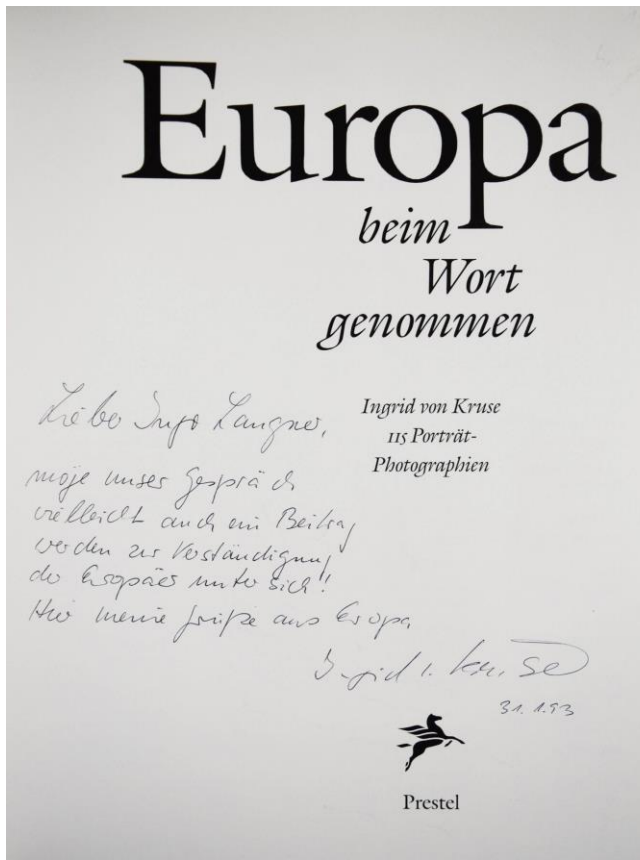 Europa
beim
Wort
genommen
Ingrid von Kruse
115 Porträt-
Photographien
Lieber Ingo Langner,
möge unser Gespräch
vielleicht auch ein Beitrag
werden zur Verständigung
der Europäer unter sich!
Hier meine Grüße aus Europa
Ingrid v. Kruse
31.1.93
Prestel